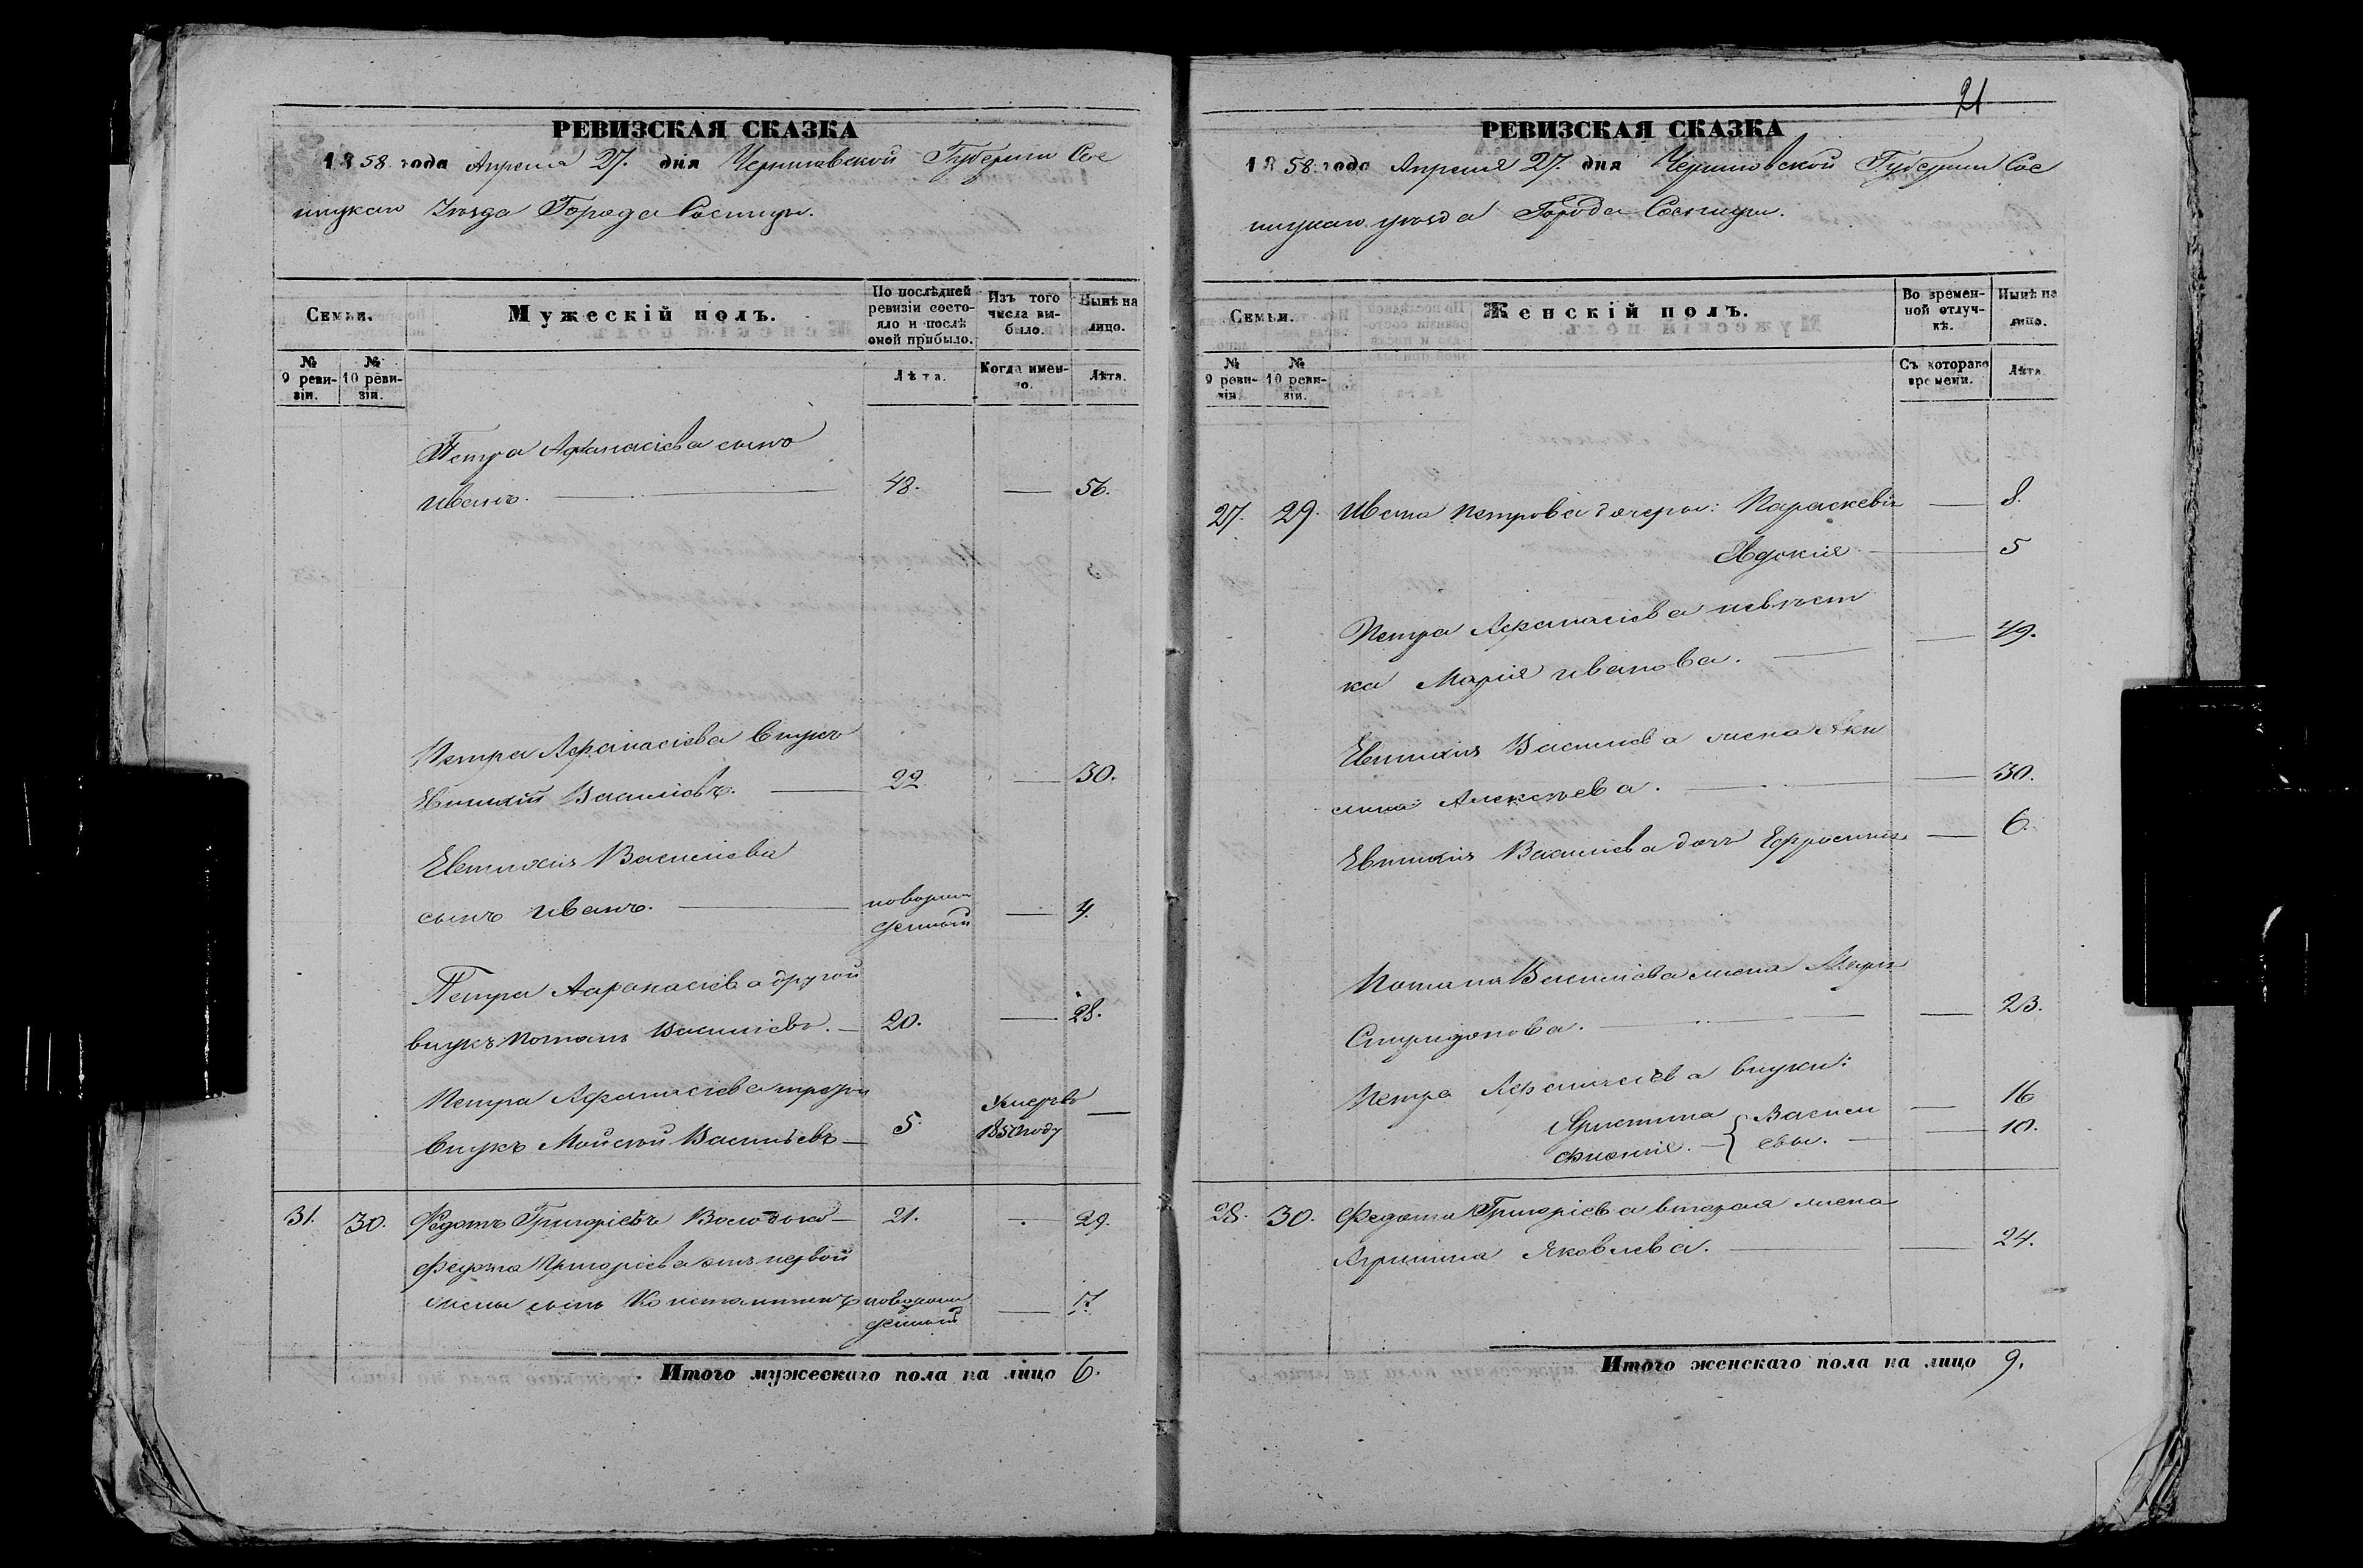 РЕВИЗСКАЯ СКАЗКА
1858 года Апреля 27. дня Черниговской Губернии Сос
ницкаго Уѣзда Города Сосницы.
Семьи.
Мужескій полъ.
По послѣдней ревизіи состояло и послѣ оной прибыло.
Изъ того числа выбыло.
Нынѣ на лицо.
№ 9 ревизіи.
№ 10 ревизіи.
Лѣта.
Когда именно.
Лѣта.
Петра Афанасіева сынъ
Иванъ. 48. — 56.
Петра Афанасіева внукъ
Евтихій Василіевъ. 22. — 30.
Евтихія Василіева
сынъ Иванъ. новорожденный — 4.
Петра Афанасіева другой
внукъ Потапъ Василіевъ. 20. — 28.
Петра Афанасіева третій
внукъ Мойсей Васильевъ 5. Умеръ въ году —
31. 30. Федотъ Григоріевъ 21. — 29.
Федота Григоріева отъ первой
жены сынъ Константинъ новорожденный —
Итого мужескаго пола на лицо 6.
21
РЕВИЗСКАЯ СКАЗКА
1858 года Апреля 27. дня Черниговской Губернии Сос
ницкаго уѣзда Города Сосницы.
Семьи.
Женскій полъ.
Во временной отлучкѣ.
Нынѣ на лицо.
№ 9 ревизіи.
№ 10 ревизіи.
Съ котораго времени.
Лѣта
27. 29. Ивана Петрова дочери: Параскевія — 8.
Евдокія — 5
Петра Афанасіева невѣст
ка Марія Иванова. — 49.
Евтихія Василіева жена Аку
лина Алексѣева. — 30.
Евтихія Василіева дочь Ефросинія — 6.
Потапа Василіева жена
Спиридонова. — 23.
Петра Афанасіева внуки:
Христина Василі — 16
Фиѳнія. евы. — 10.
28. 30. Федота Григоріева вторая жена
Агрипина Яковлева. — 24.
Итого женскаго пола на лицо 9.